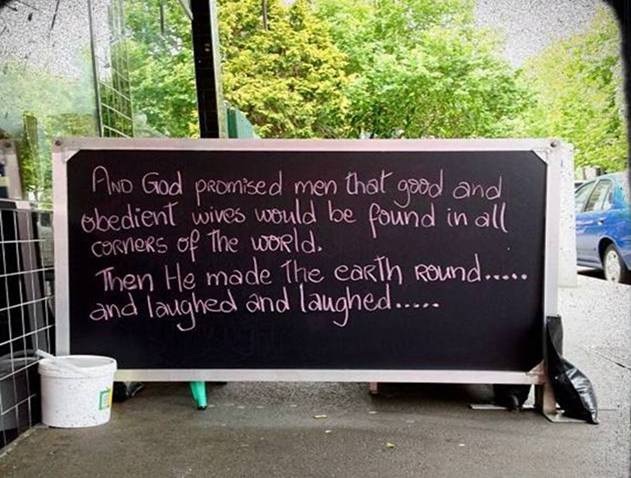 And God promised men that good and
obedient wives would be found in all
corners of the world.
Then He made the earth round.....
and laughed and laughed.....